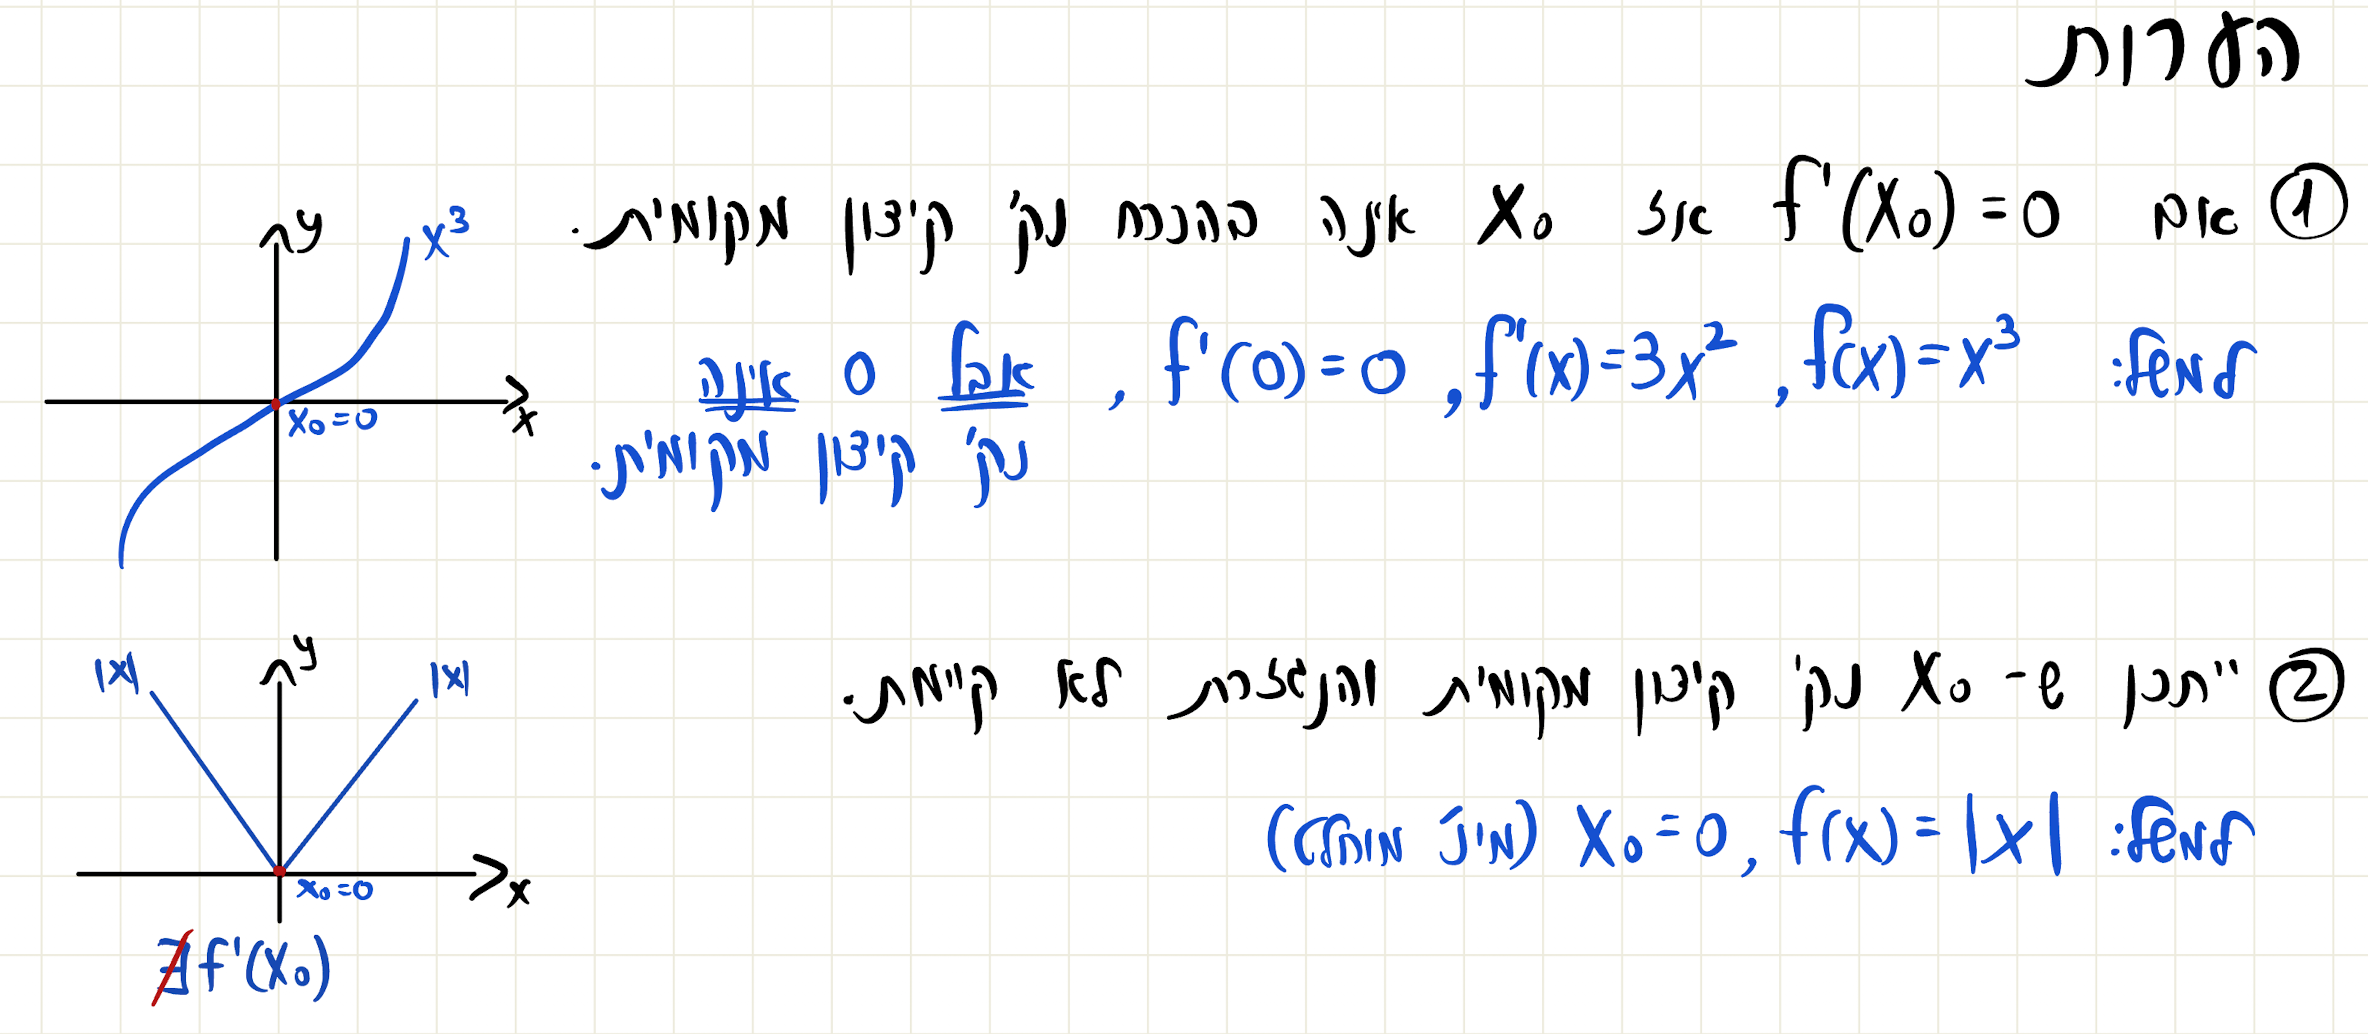 הערות
① אם f'(x₀)=0 אז x₀ אינה בהכרח נק' קיצון מקומית.
למשל: f(x)=x³, f'(x)=3x², f'(0)=0, אבל 0 אינה
נק' קיצון מקומית.
y
x³
x
x₀=0
② ייתכן ש- x₀ נק' קיצון מקומית והנגזרת לא קיימת.
למשל: f(x)=|x|, x₀=0 (מינ' מוחלט)
y
|x|
|x|
x
x₀=0
∄f'(x₀)